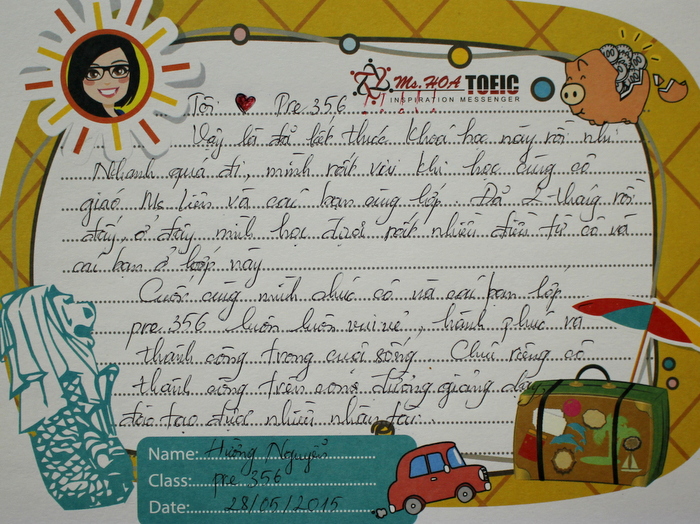 Ms. HOA TOEIC
INSPIRATION MESSENGER
Tôi Pre 356
Vậy là đã kết thúc khoá học này rồi nhỉ
Nhanh quá đi, mình rất vui khi học cùng cô
giáo Ms Liên và các bạn cùng lớp. Đã 2 tháng rồi
đấy, ở đây mình học được rất nhiều điều từ cô và
các bạn ở lớp này
Cuối cùng mình chúc cô và các bạn lớp
pre 356 luôn luôn vui vẻ, hành phúc và
thành công trong cuộc sống. Chúc riêng cô
thành công trên con đường giảng dạy
đào tạo được nhiều nhân tài.
Name: Hường Nguyễn
Class: pre 356
Date: 28/05/2015